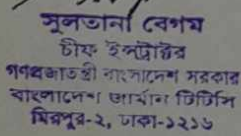 সুলতানা বেগম
চীফ ইন্সট্রাক্টর
গণপ্রজাতন্ত্রী বাংলাদেশ সরকার
বাংলাদেশ জার্মান টিটিসি
মিরপুর-২, ঢাকা-১২১৬